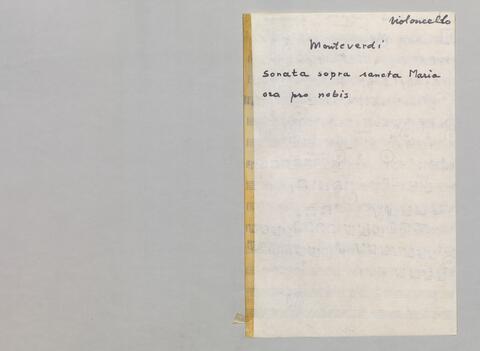 Violoncello
Monteverdi
Sonata sopra sancta Maria
ora pro nobis